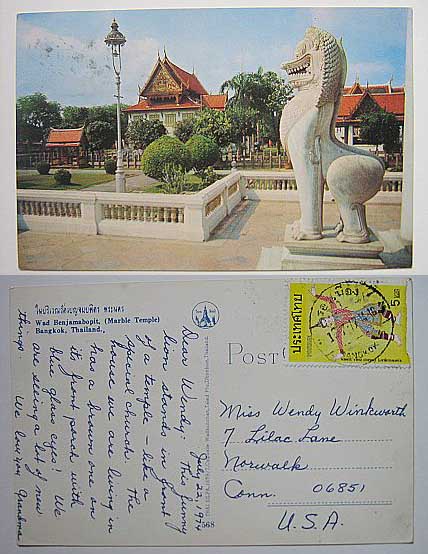 ในบริเวณวัดเบญจมบพิตร พระนคร
Wad Benjamabopit, (Marble Temple)
Bangkok, Thailand.,
July 22, 1974
Dear Wendy: This funny
lion stands in front
of a temple – like a
special church. The
house we are living in
has a brown one on
its front porch with
blue glass eyes! We
are seeing a lot of new
things. We love you Grandma
568
POST
ประเทศไทย
5
Miss Wendy Winkworth
7 Lilac Lane
Norwalk
Conn. 06851
U.S.A.